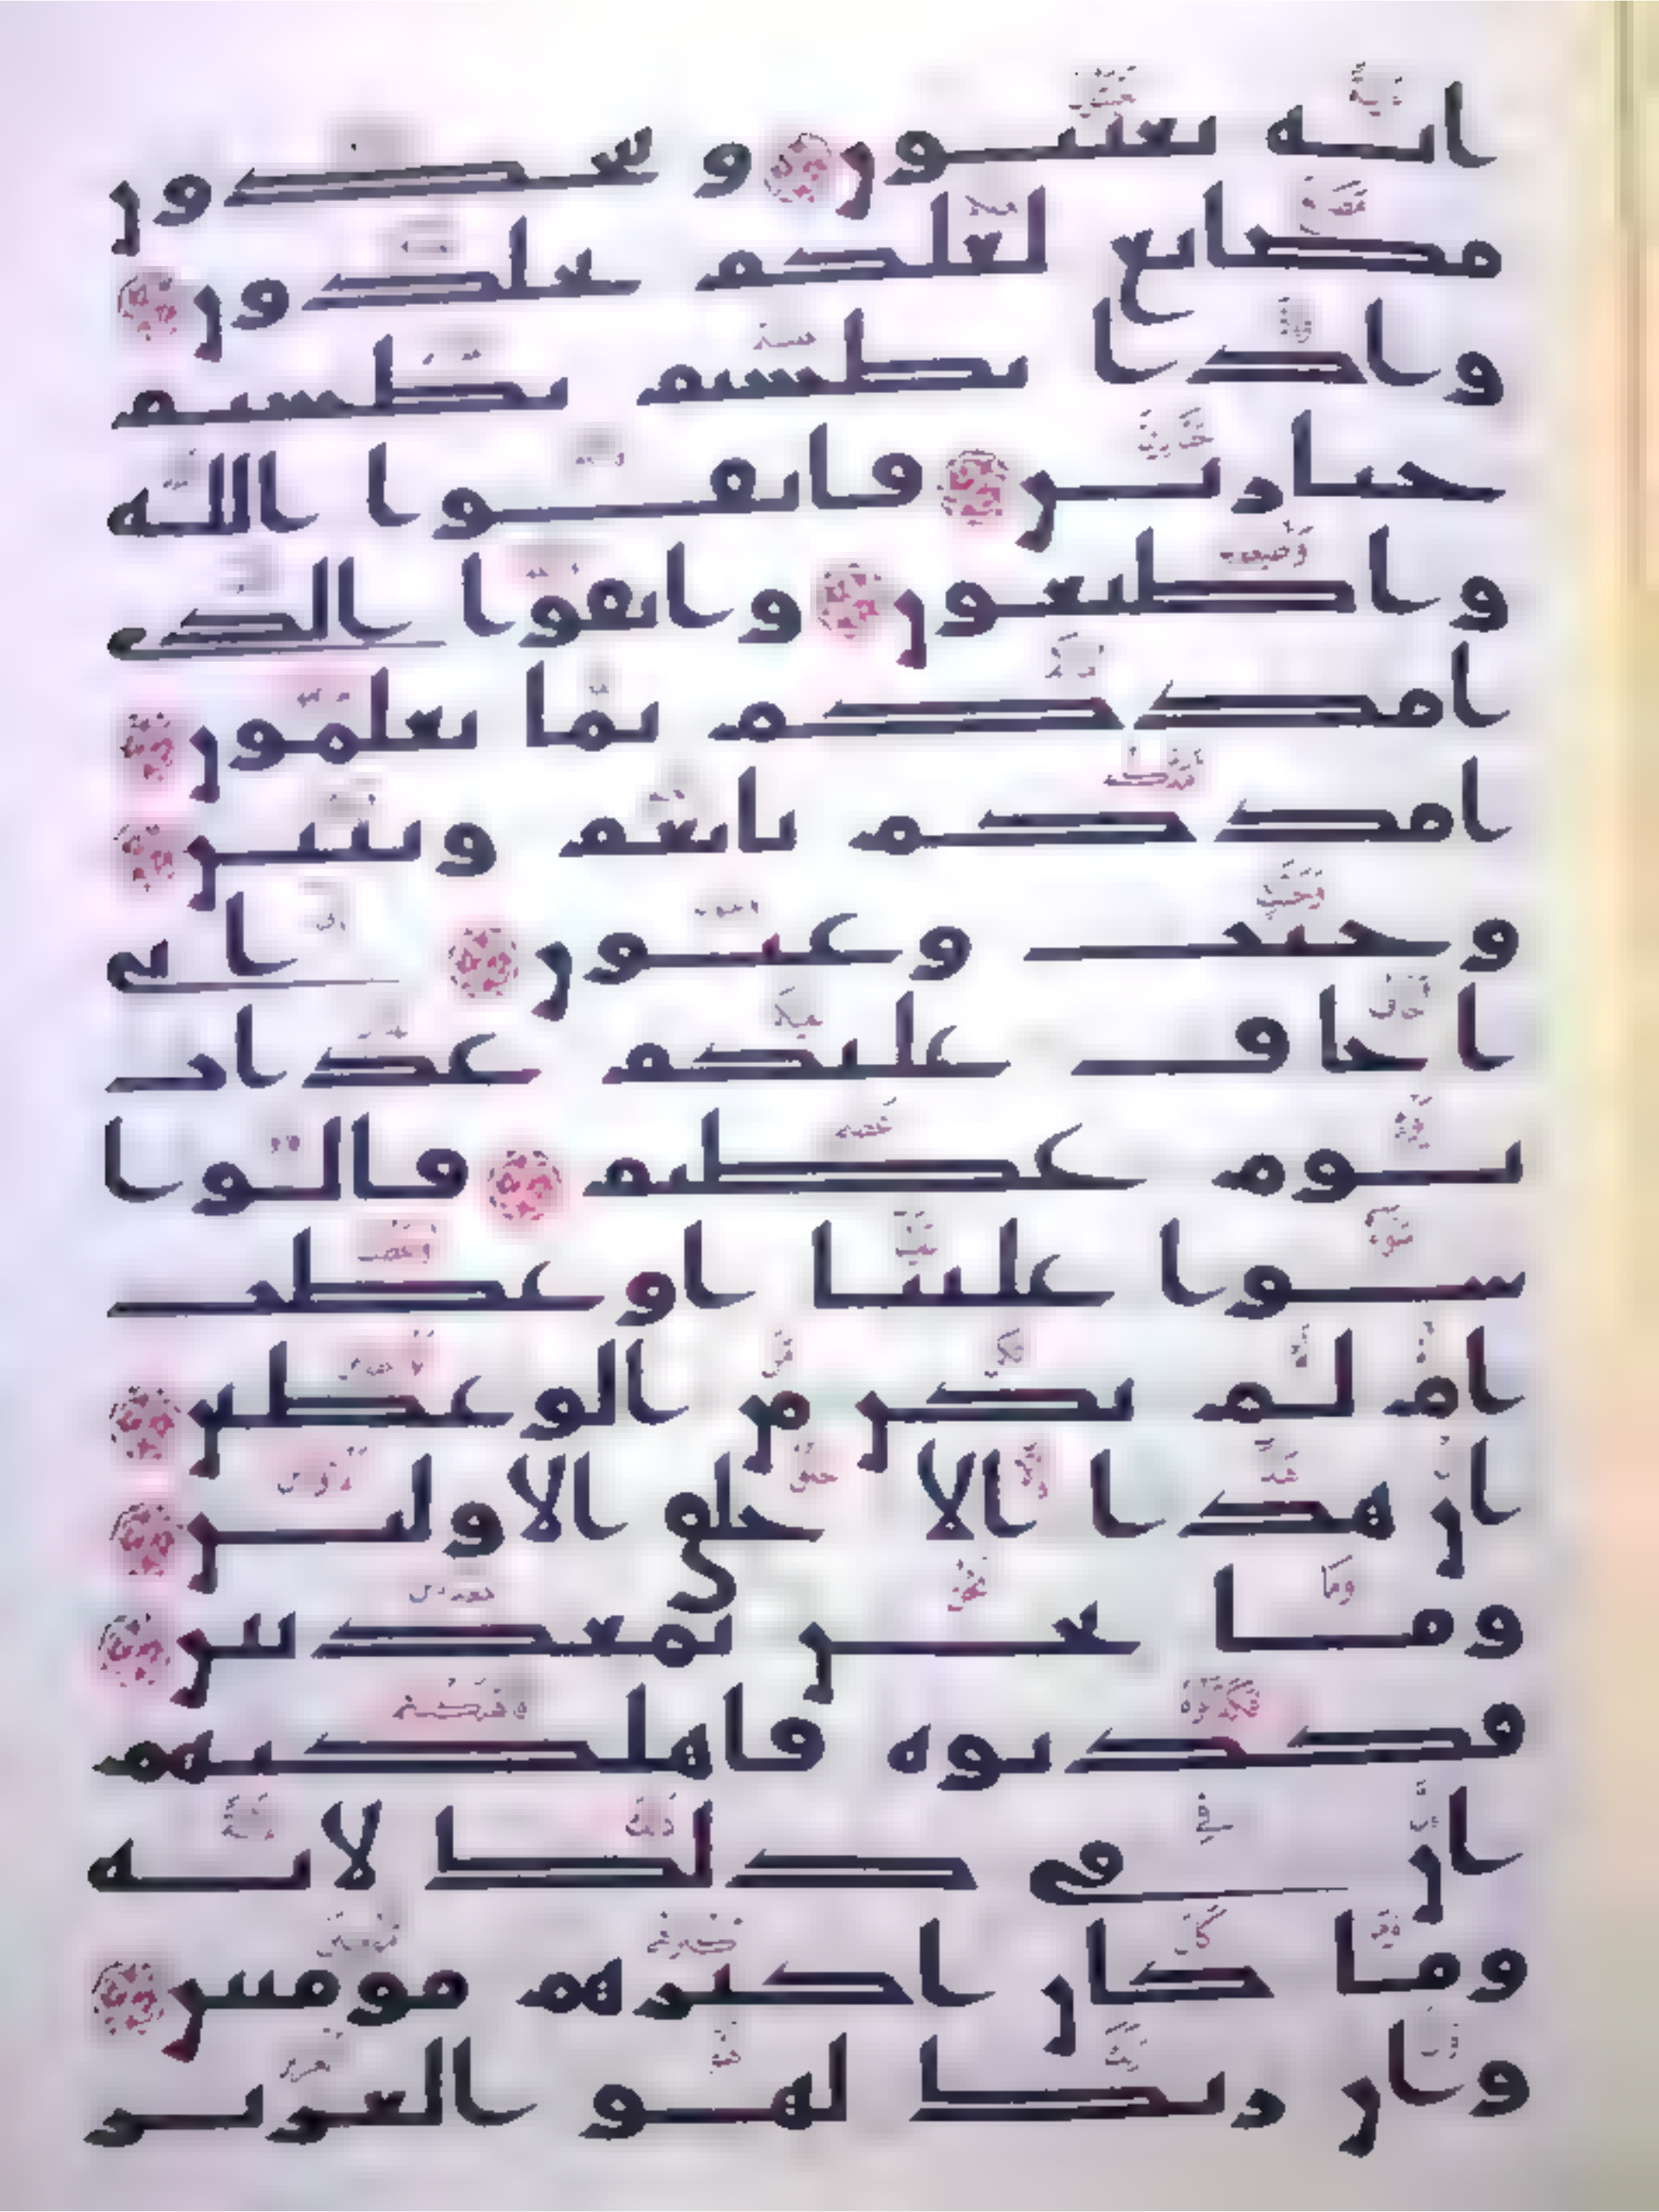 ايه تعبثون و تتخذون
مصانع لعلكم تخلدون
واذا بطشتم بطشتم
جبارين فاتقوا الله
واطيعون واتقوا الذي
امدكم بما تعلمون
امدكم بانعم وبنين
وجنت وعيون اني
اخاف عليكم عذاب
يوم عظيم قالوا
سوا علينا اوعظت
ام لم تكن من الوعظين
ان هذا الا خلق الاولين
وما نحن بمعذبين
فكذبوه فاهلكنهم
ان في ذلك لايه
وما كان اكثرهم مومنين
وان ربك لهو العزيز